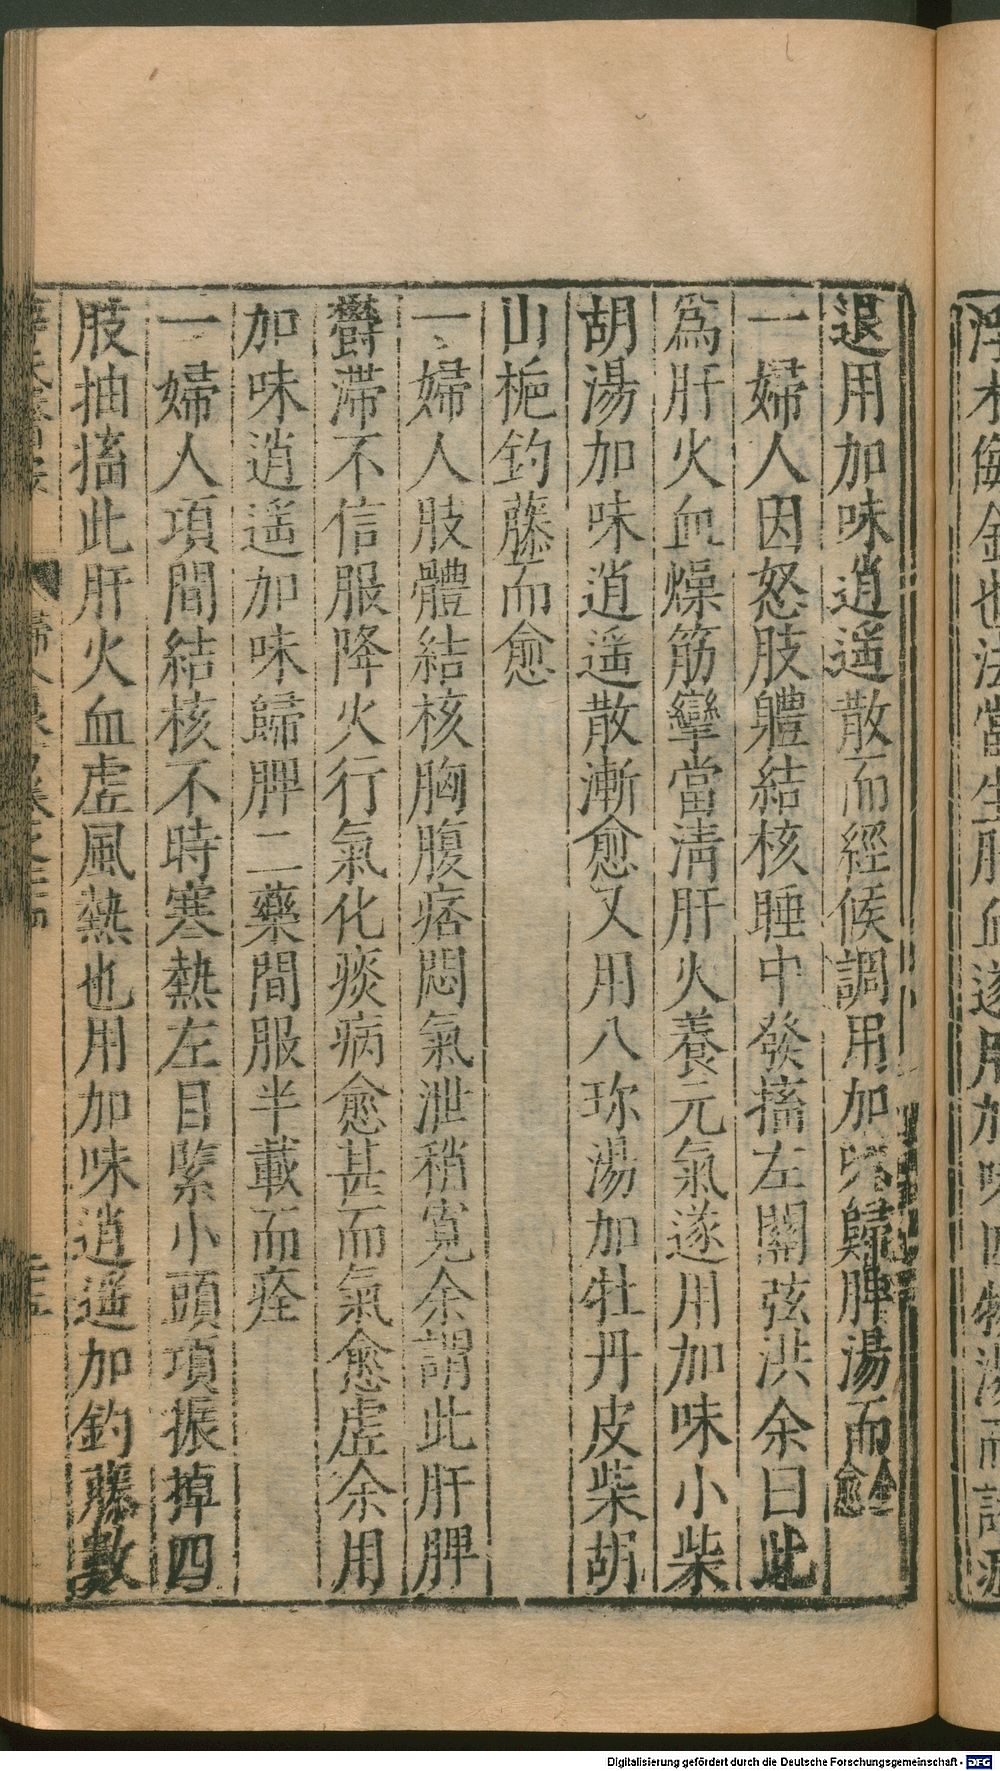 退用加味逍遥散而經候調用加味歸脾湯而全愈
一婦人因怒肢軆結核睡中發搐左關弦洪余曰此
為肝火血燥筋攣當淸肝火養元氣遂用加味小柴
胡湯加味逍遥散漸愈又用八珎湯加牡丹皮柴胡
山梔鈎藤而愈
一婦人肢體結核胸腹痞悶氣泄稍寬余謂此肝脾
欝滯不信服降火行氣化痰病愈甚而氣愈虛余用
加味逍遥加味歸脾二藥間服半載而痊
一婦人項間結核不時寒熱左目緊小頭項振掉四
肢抽搐此肝火血虛風熱也用加味逍遥加鈎藤數
Digitalisierung gefördert durch die Deutsche Forschungsgemeinschaft - DFG